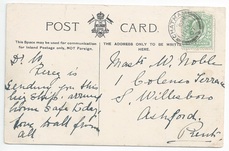 POST CARD.
This Space may be used for communication
for Inland Postage only. NOT Foreign.
THE ADDRESS ONLY TO BE WRITTEN
HERE.
Dr. M.
Percy is
Sending you this
ship
home Safe today
love to all from
all
Mast M. Noble
1 Colenso Terrace
S. Willesboro
Ashford
Kent